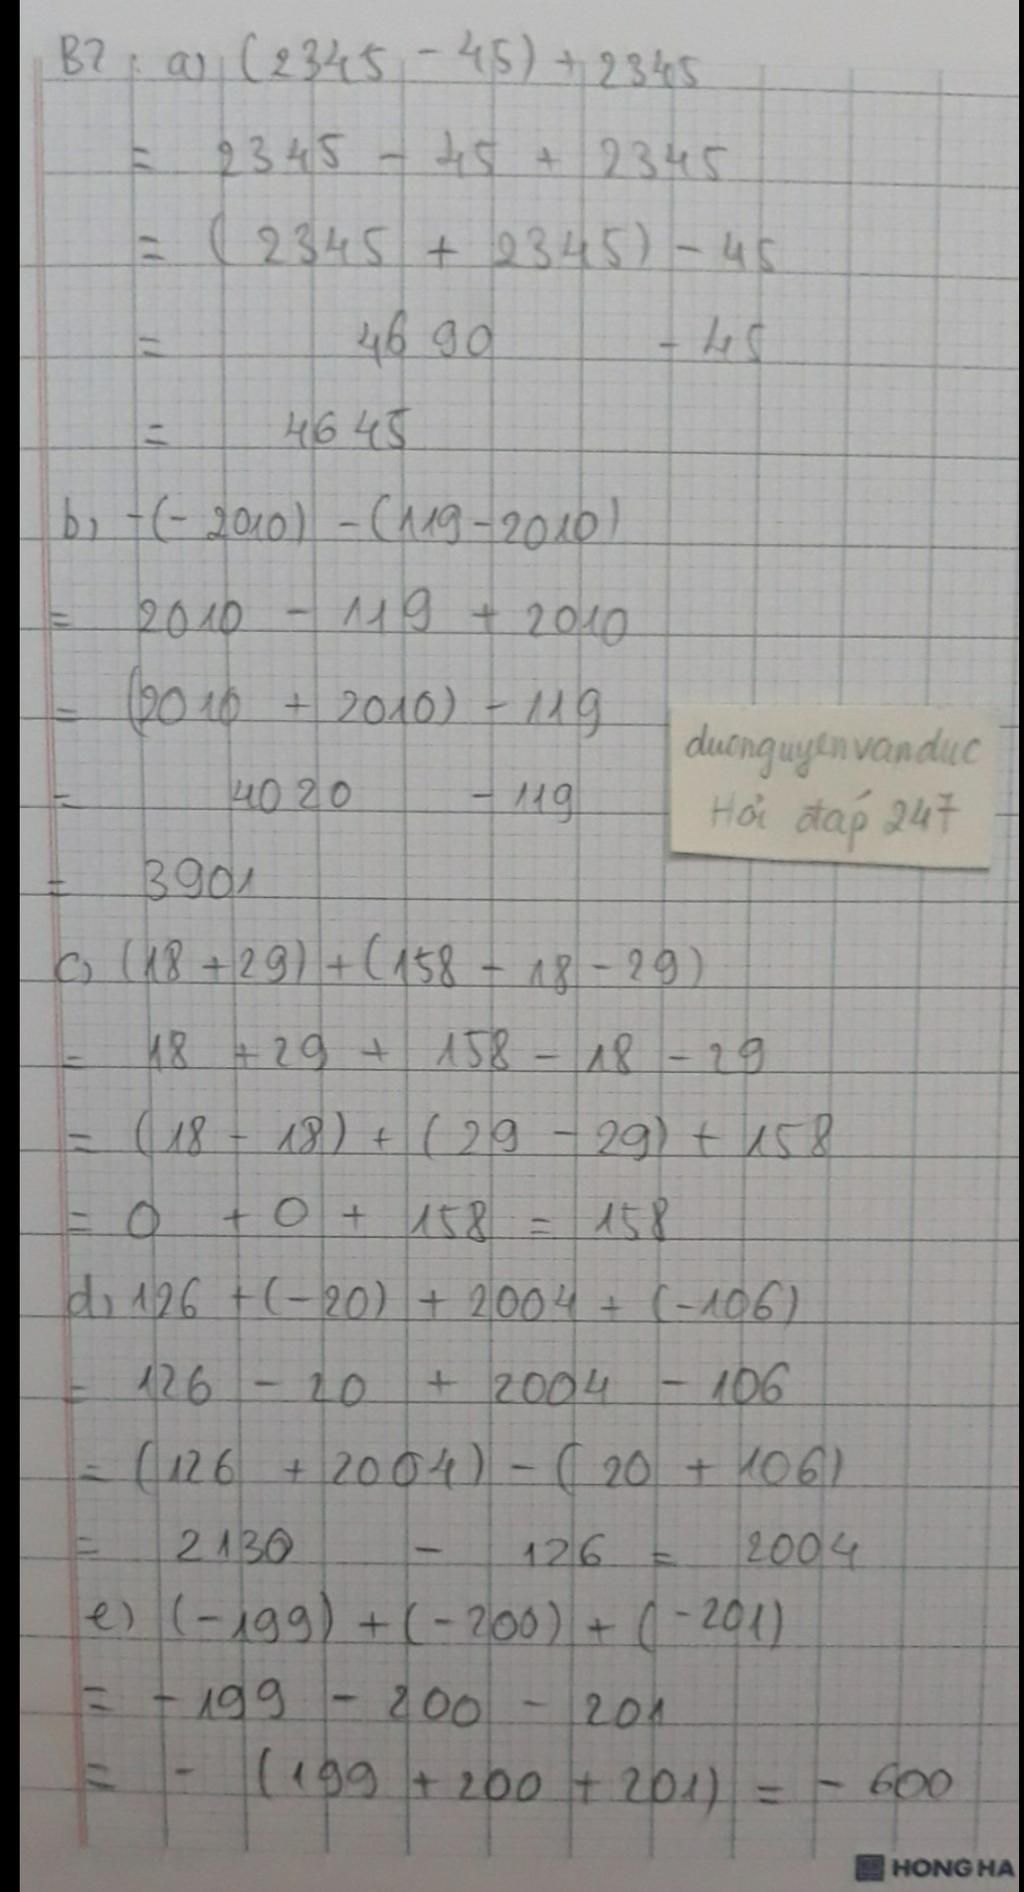 B7: a) (2345 - 45) + 2345
= 2345 - 45 + 2345
= (2345 + 2345) - 45
= 4690 - 45
= 4645
b, -(-2010) - (119 - 2010)
= 2010 - 119 + 2010
= (2010 + 2010) - 119
= 4020 - 119
= 3901
ducnguyenvanduc
Hỏi đáp 247
c) (18 + 29) + (158 - 18 - 29)
= 18 + 29 + 158 - 18 - 29
= (18 - 18) + (29 - 29) + 158
= 0 + 0 + 158 = 158
d, 126 + (-20) + 2004 + (-106)
= 126 - 20 + 2004 - 106
= (126 + 2004) - (20 + 106)
= 2130 - 126 = 2004
e) (-199) + (-200) + (-201)
= -199 - 200 - 201
= - (199 + 200 + 201) = - 600
HONG HA